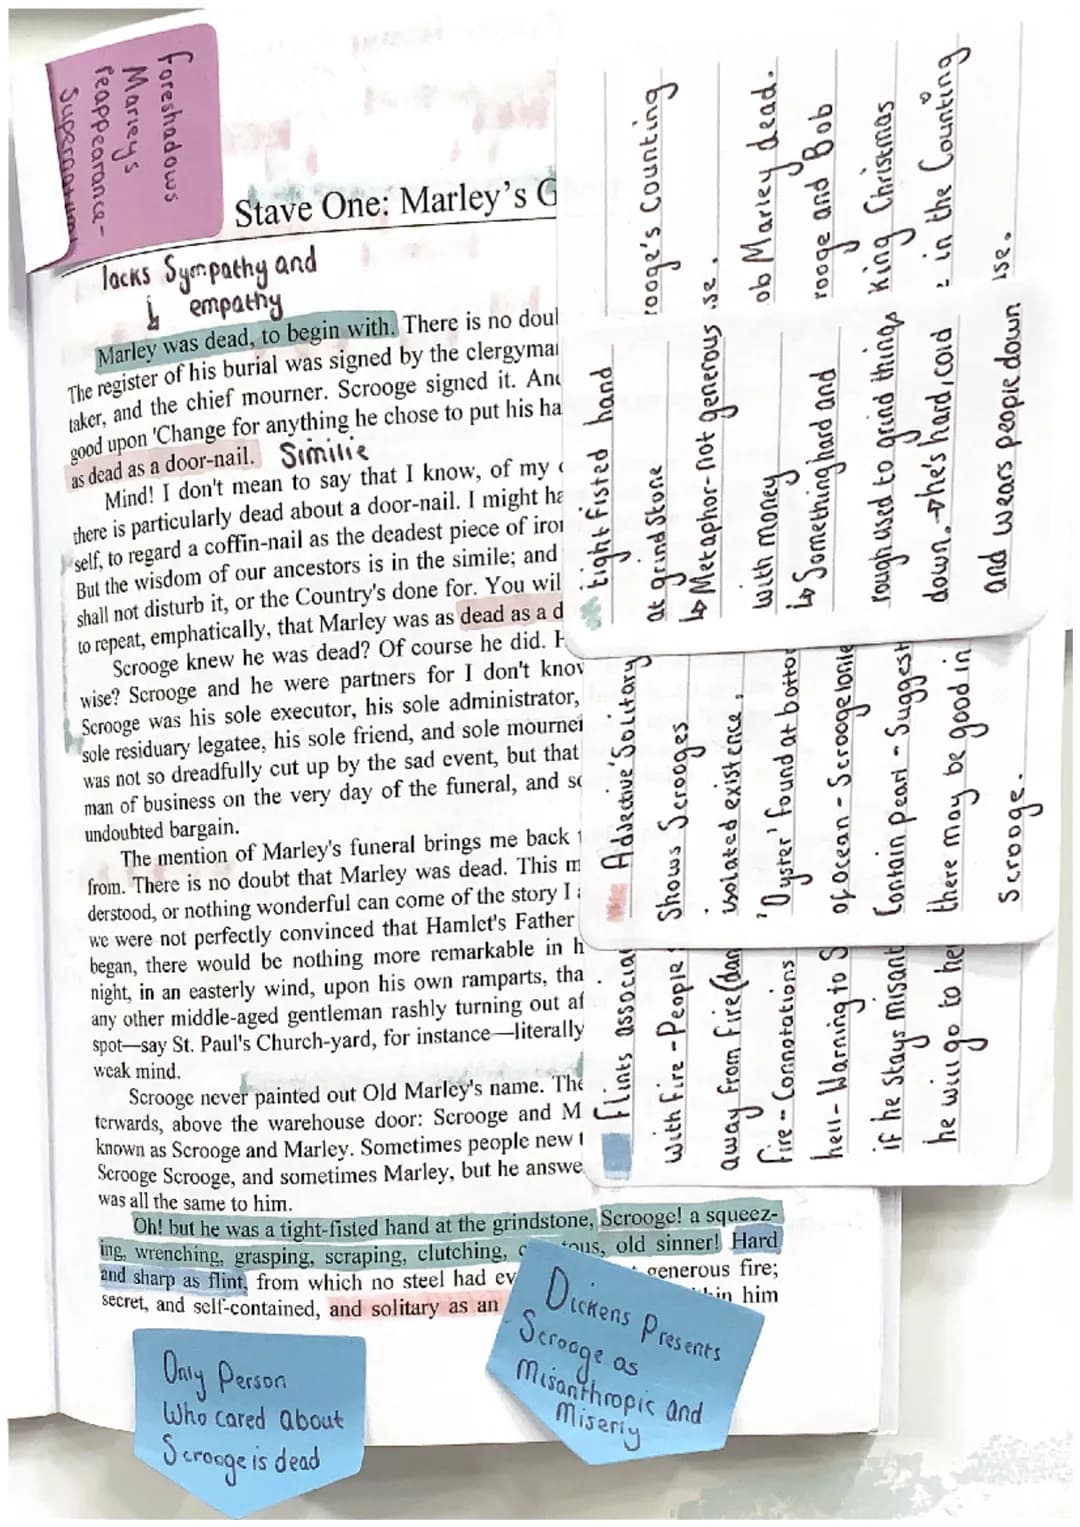 foreshadows
Marleys
reappearance-
Stave One: Marley's G
lacks Sympathy and
empathy
Marley was dead, to begin with. There is no doul
The register of his burial was signed by the clergymai
taker, and the chief mourner. Scrooge signed it. And
good upon 'Change for anything he chose to put his ha
as dead as a door-nail. Similie
Mind! I don't mean to say that I know, of my
there is particularly dead about a door-nail. I might ha
self, to regard a coffin-nail as the deadest piece of iror
But the wisdom of our ancestors is in the simile; and
shall not disturb it, or the Country's done for. You wil
to repeat, emphatically, that Marley was as dead as a d
Scrooge knew he was dead? Of course he did. H
wise? Scrooge and he were partners for I don't knov
Scrooge was his sole executor, his sole administrator,
sole residuary legatee, his sole friend, and sole mournei
was not so dreadfully cut up by the sad event, but that
man of business on the very day of the funeral, and so
undoubted bargain.
The mention of Marley's funeral brings me back t
from. There is no doubt that Marley was dead. This m
derstood, or nothing wonderful can come of the story I
we were not perfectly convinced that Hamlet's Father
began, there would be nothing more remarkable in h
night, in an easterly wind, upon his own ramparts, tha
any other middle-aged gentleman rashly turning out af
spot—say St. Paul's Church-yard, for instance—literally
weak mind.
Scrooge never painted out Old Marley's name. The
terwards, above the warehouse door: Scrooge and M
known as Scrooge and Marley. Sometimes people new t
Scrooge Scrooge, and sometimes Marley, but he answe
was all the same to him.
Oh! but he was a tight-fisted hand at the grindstone, Scrooge! a squeez-
ing, wrenching, grasping, scraping, clutching, c tous, old sinner! Hard
and sharp as flint, from which no steel had ev generous fire;
secret, and self-contained, and solitary as an hin him
rooge's Counting
se.
ob Marley dead.
rooge and Bob
king Christmas
in the Counting
use.
tight fisted hand
at grind stone
↳ Metaphor-not generous
with money
↳ Something hard and
rough used to grind things
down.→he's hard, cold
and wears people down
Adjective 'Solitary
Shows Scrooges
isolated existence,
'Oyster' found at botto
of ocean - Scrooge lone
Contain pearl - Suggest
there may be good in
Scrooge.
Flints associa
with Fire - People
away from fire (dan
fire - Connotations
hell - Warning to S
if he stays misant
he will go to he
Only Person
Who cared about
Scrooge is dead
Dickens Presents
Scrooge as
Misanthropic and
Miserly